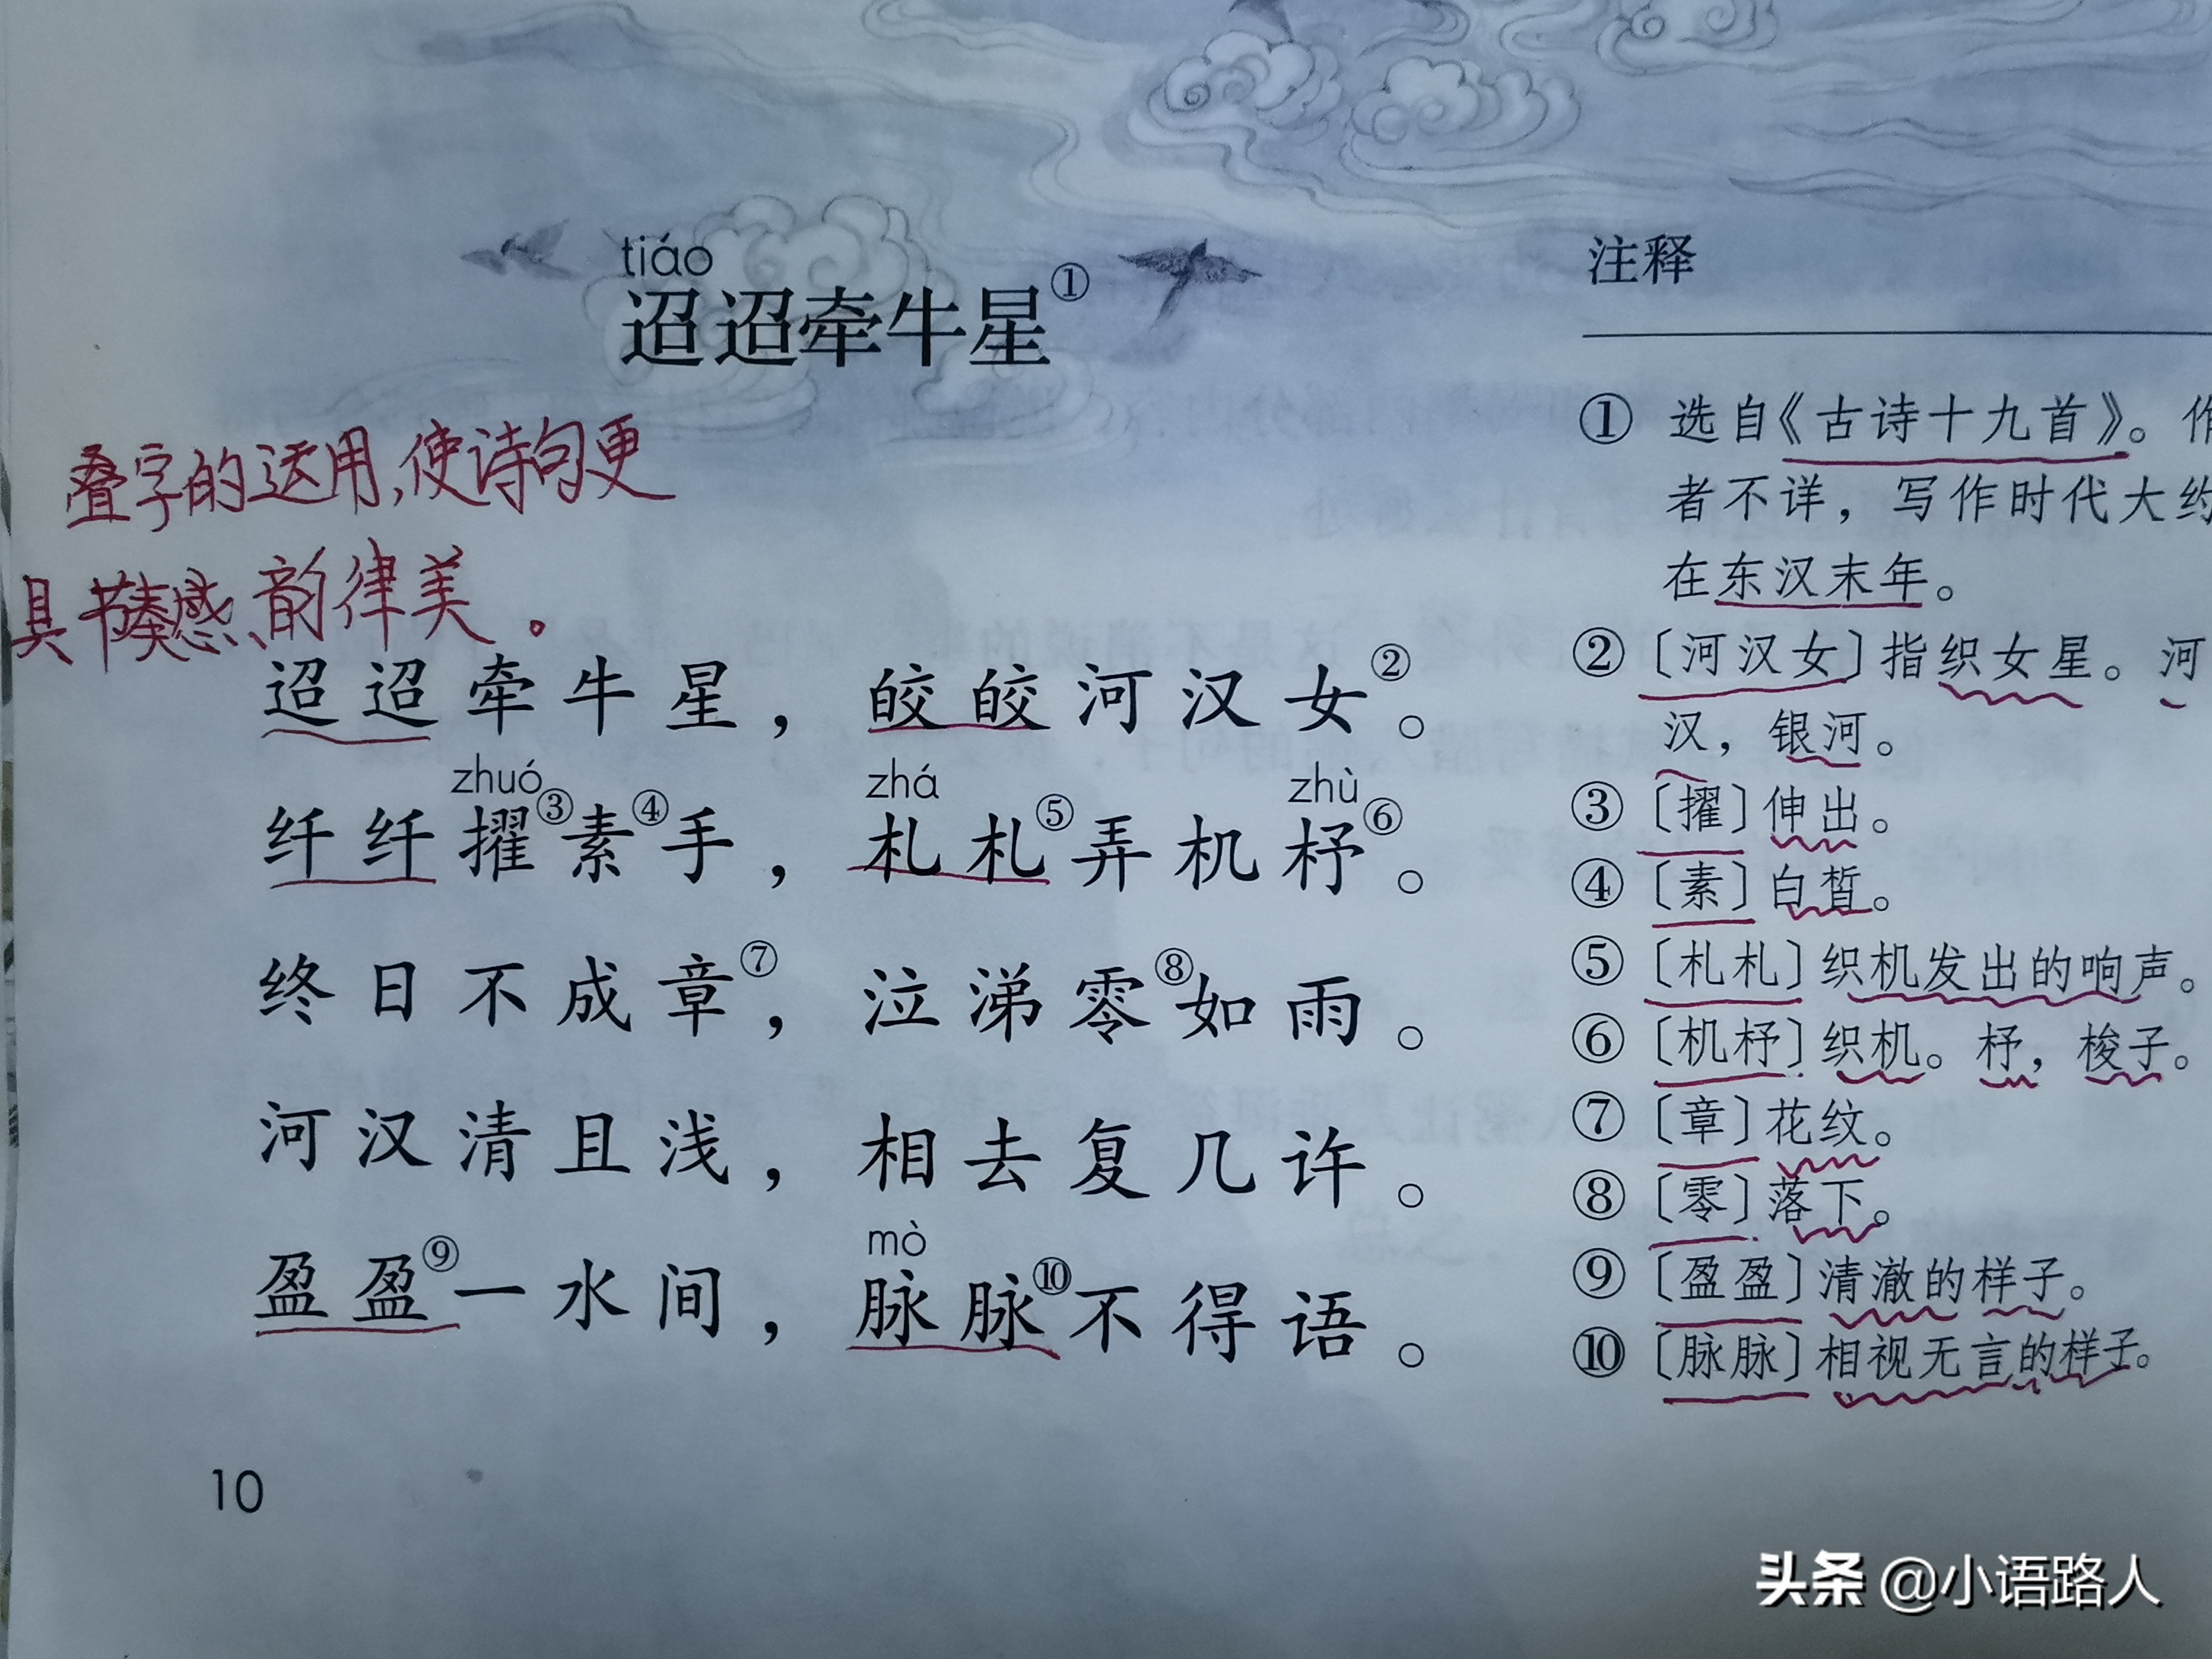 tiáo
迢迢牵牛星①
叠字的运用,使诗句更
具节奏感、韵律美。
迢迢牵牛星，皎皎河汉女②。
zhuó zhá zhù
纤纤擢③素④手，札札⑤弄机杼⑥。
终日不成章⑦，泣涕零⑧如雨。
河汉清且浅，相去复几许。
mò
盈盈⑨一水间，脉脉⑩不得语。
注释
① 选自《古诗十九首》。作
者不详，写作时代大约
在东汉末年。
② 〔河汉女〕指织女星。河
汉，银河。
③ 〔擢〕伸出。
④ 〔素〕白皙。
⑤ 〔札札〕织机发出的响声。
⑥ 〔机杼〕织机。杼，梭子。
⑦ 〔章〕花纹。
⑧ 〔零〕落下。
⑨ 〔盈盈〕清澈的样子。
⑩ 〔脉脉〕相视无言的样子。
10
头条 @小语路人